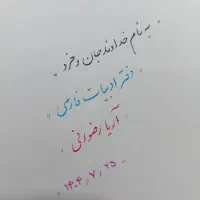 " به نام خداوند جان و خرد "
" دفتر ادبیات فارسی "
" آریا رضوانی "
" ۱۴۰۴ / ۷ / ۲۵ "